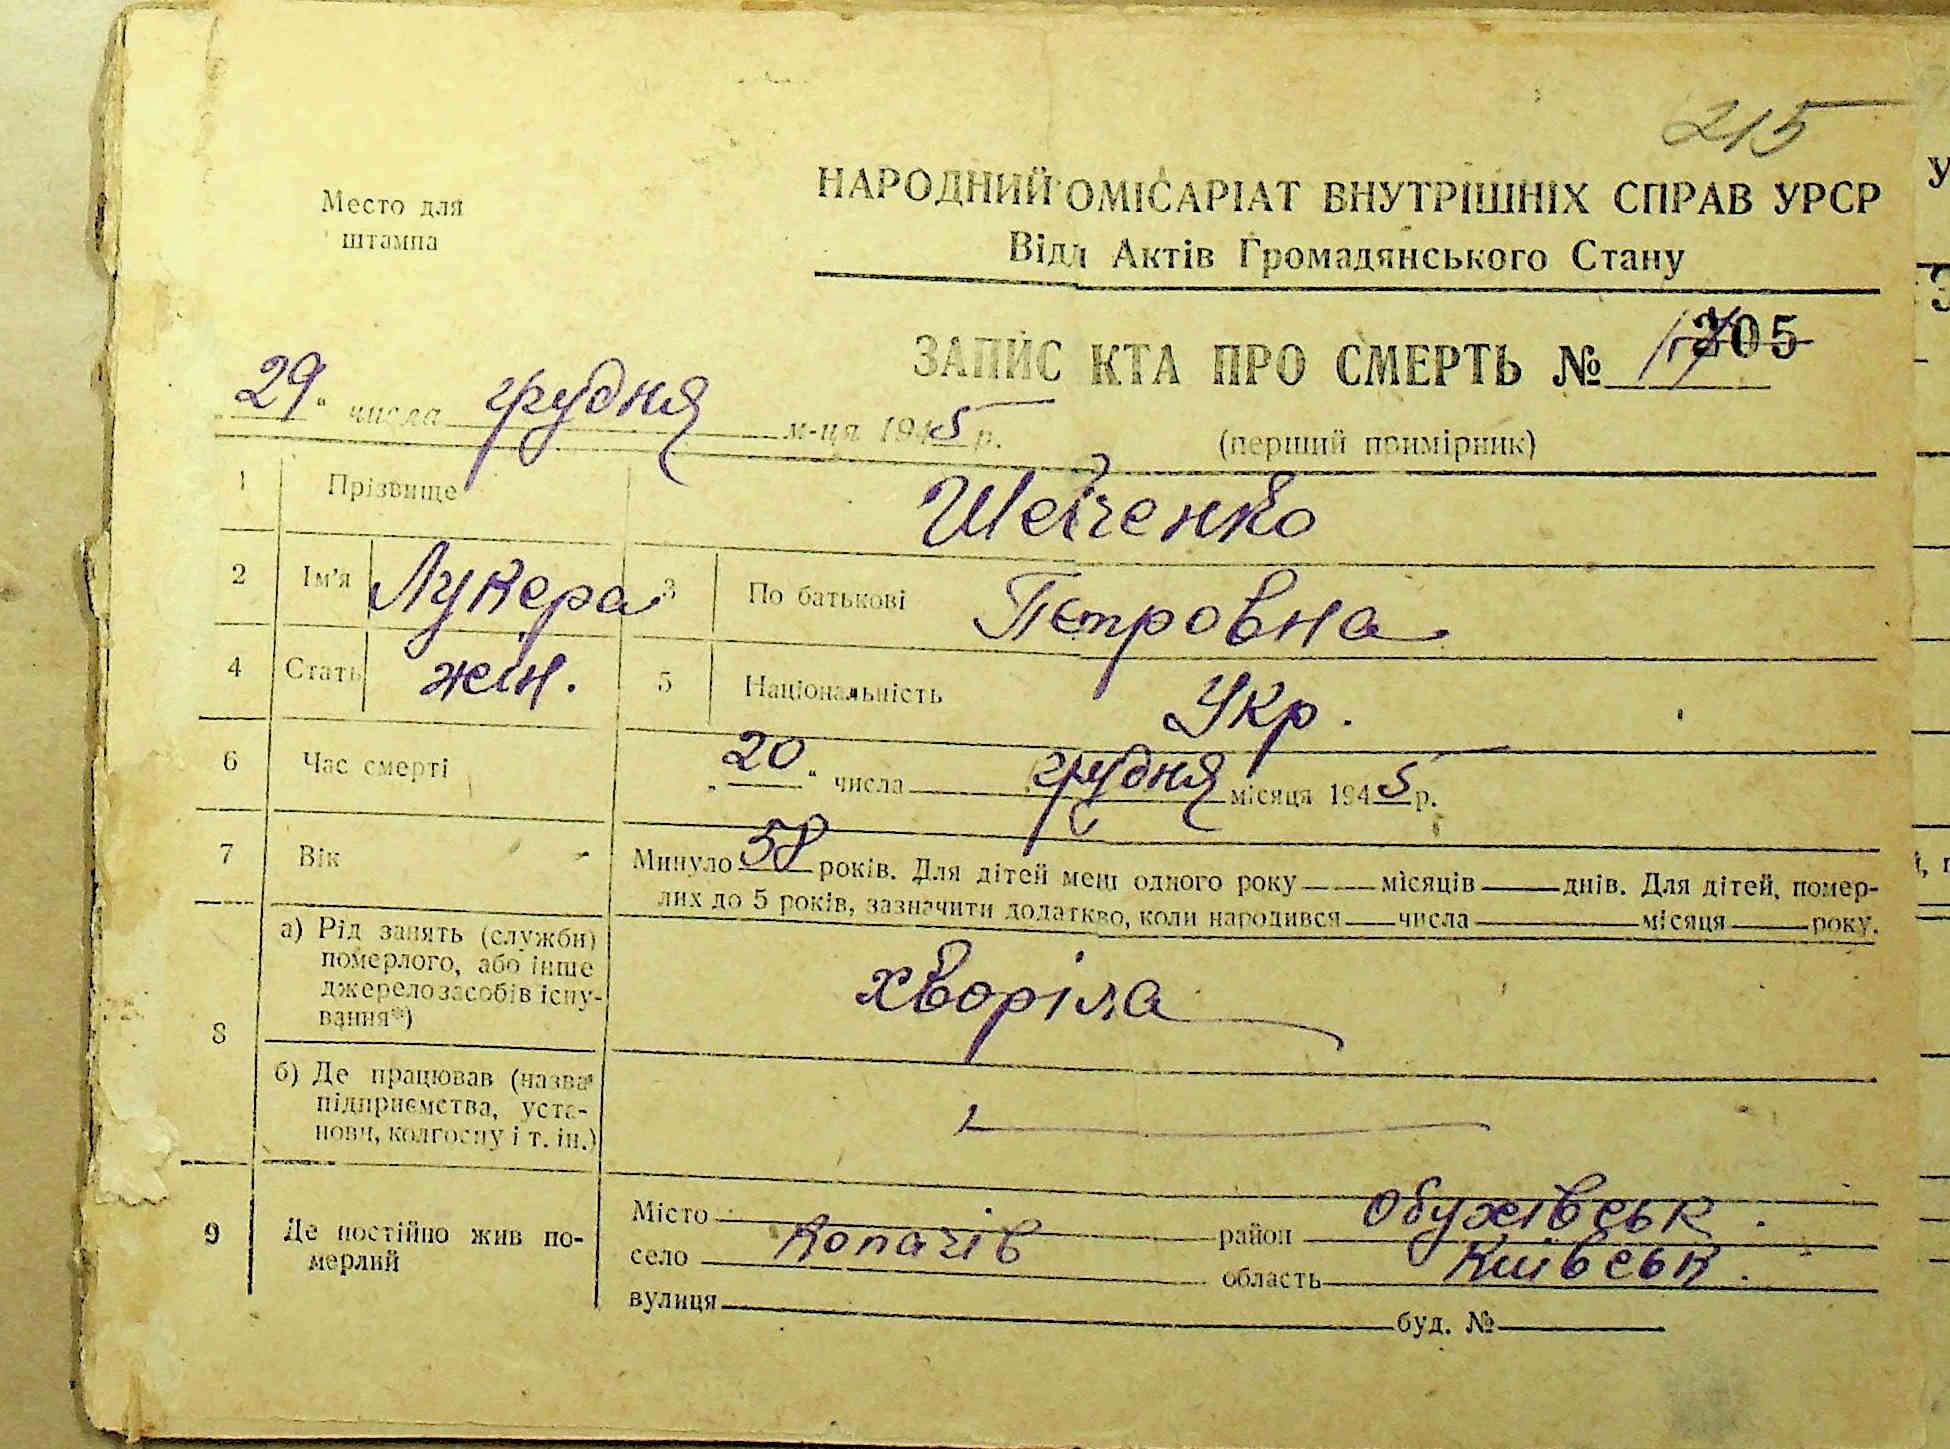 215
Место для
штампа
НАРОДНИЙ ОМІСАРІАТ ВНУТРІШНІХ СПРАВ УРСР
Відл Актів Громадянського Стану
ЗАПИС КТА ПРО СМЕРТЬ № 205
„29“ числа грудня м-ця 1945 р.
(перший примірник)
1 Прізвище Шевченко
2 Ім'я Лукера 3 По батькові Петровна
4 Стать жін. 5 Національність Укр.
6 Час смерті „20“ числа грудня місяця 1945 р.
7 Вік Минуло 58 років. Для дітей менш одного року місяців днів. Для дітей, помер-
лих до 5 років, зазначити додатково, коли народився числа місяця року.
8 а) Рід занять (служби)
померлого, або інше
джерело засобів існу-
вання*)
хворіла
б) Де працював (назва
підприємства, уста-
нови, колгоспу і т. ін.)
9 Де постійно жив по-
мерлий
Місто район Обухівськ.
село Копачів область Київськ.
вулиця буд. №